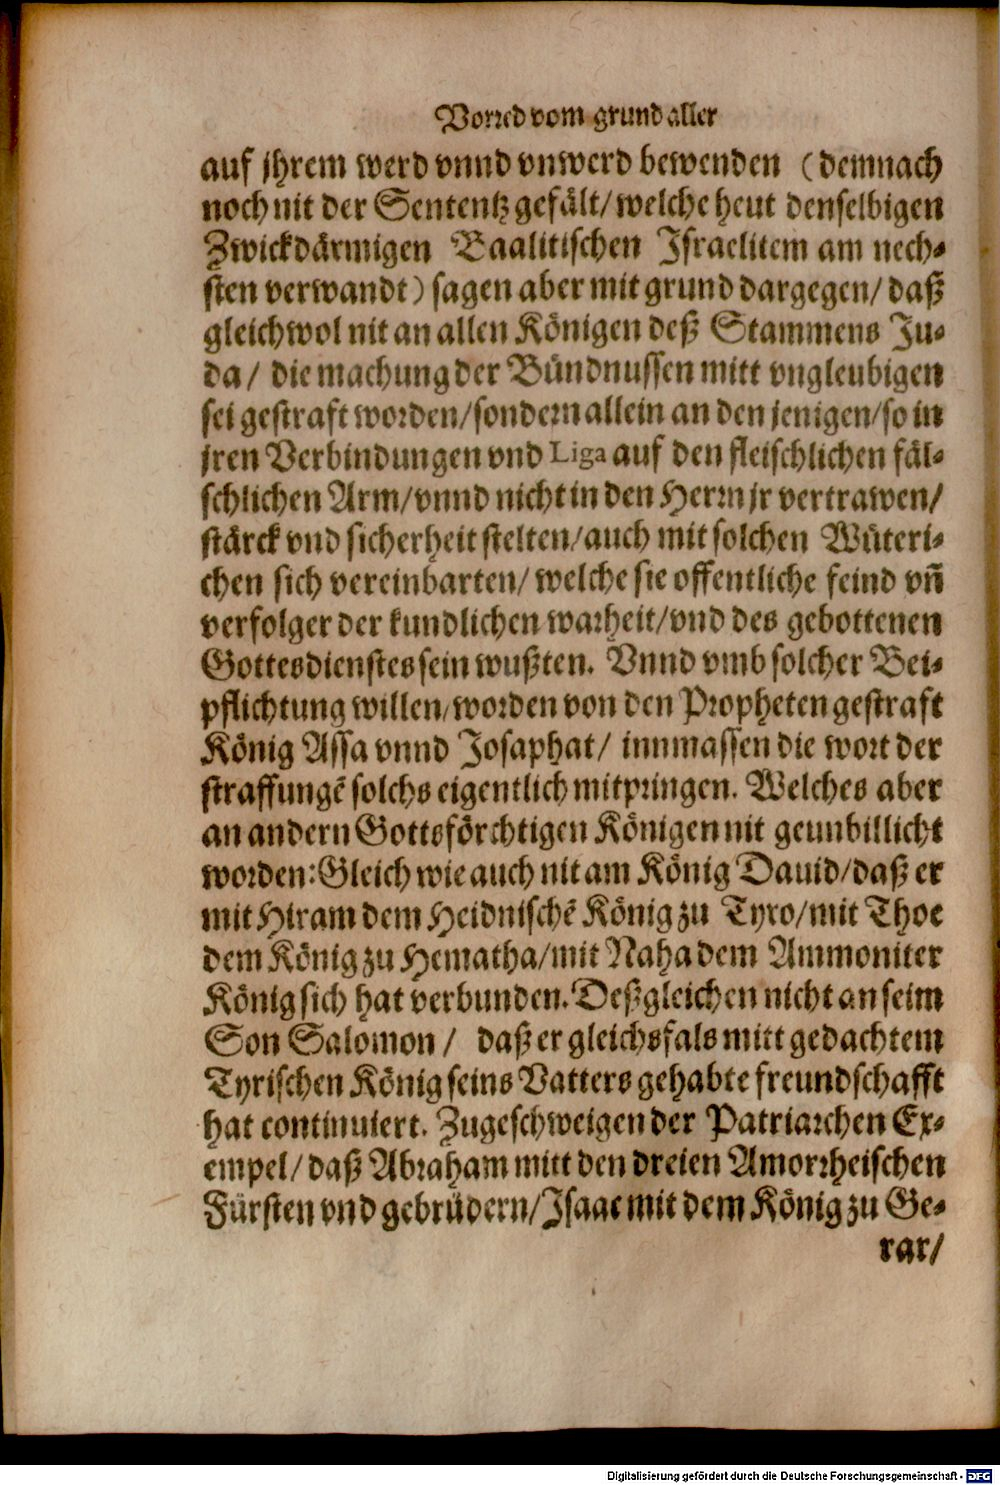 Vorred vom grund aller
auf jhrem werd vnnd vnwerd bewenden (demnach
noch nit der Sententz gefält/ welche heut denselbigen
Zwickdärmigen Baalitischen Israelitem am nech-
sten verwandt) sagen aber mit grund dargegen/ daß
gleichwol nit an allen Königen deß Stammens Ju-
da/ die machung der Bündnussen mitt vngleubigen
sei gestraft worden/ sondern allein an den jenigen/ so in
jren Verbindungen vnd Liga auf den fleischlichen fäl-
schlichen Arm/ vnnd nicht in den Herrn jr vertrawen/
stärck vnd sicherheit stelten/ auch mit solchen Wüteri-
chen sich vereinbarten/ welche sie offentliche feind vñ
verfolger der kundlichen warheit/ vnd des gebottenen
Gottesdienstes sein wußten. Vnnd vmb solcher Bei-
pflichtung willen/ worden von den Propheten gestraft
König Assa vnnd Josaphat/ innmassen die wort der
straffungē solchs eigentlich mitpringen. Welches aber
an andern Gottsförchtigen Königen nit geunbillicht
worden: Gleich wie auch nit am König Dauid/ daß er
mit Hiram dem Heidnischē König zu Tyro/ mit Thoe
dem König zu Hematha/ mit Naha dem Ammoniter
König sich hat verbunden. Deßgleichen nicht an seim
Son Salomon/ daß er gleichsfals mitt gedachtem
Tyrischen König seins Vatters gehabte freundschafft
hat continuiert. Zugeschweigen der Patriarchen Ex-
empel/ daß Abraham mitt den dreien Amorrheischen
Fürsten vnd gebrüdern/ Isaac mit dem König zu Ge-
rar/
Digitalisierung gefördert durch die Deutsche Forschungsgemeinschaft - DFG